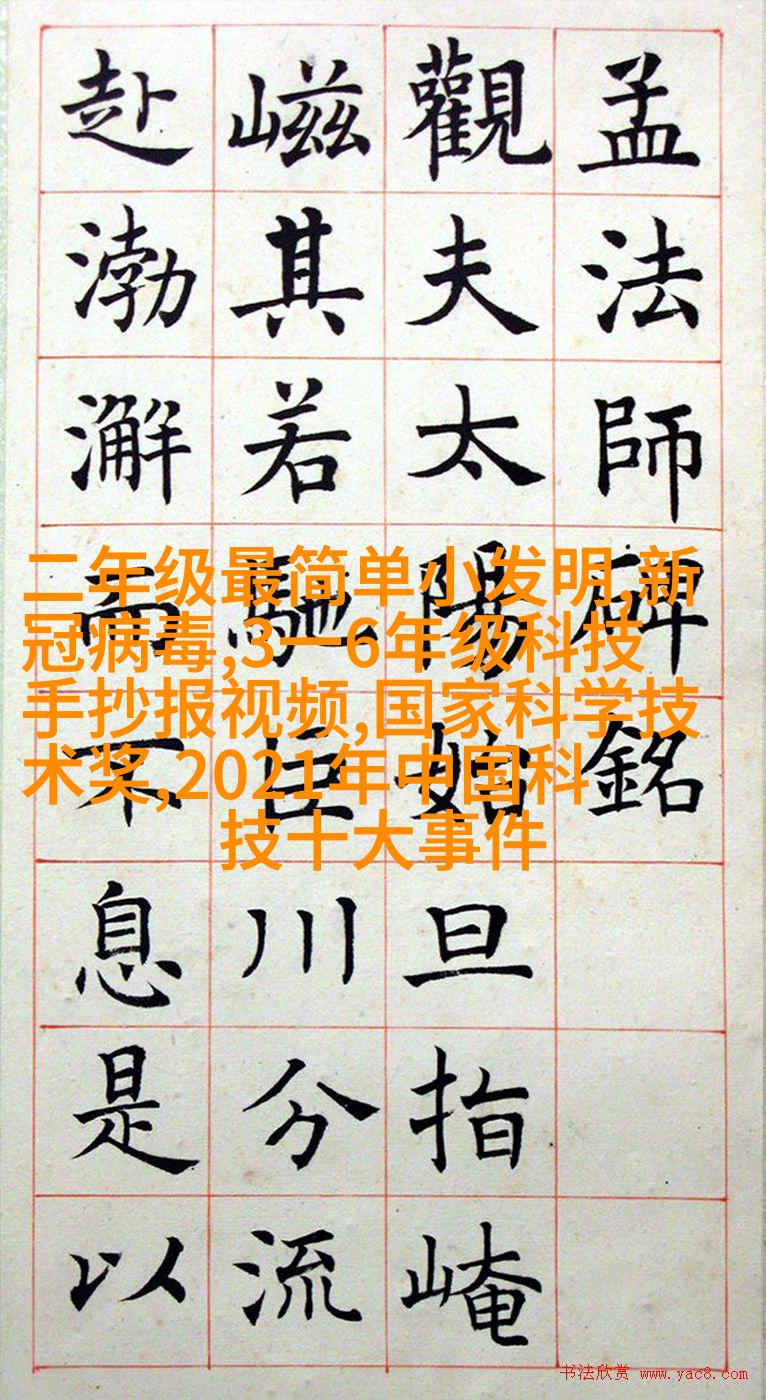 孟法師碑銘
觀夫太陽始旦指崦
嵫其若馳巨川分流
赴渤澥而不息是以
二年级最简单小发明,新
冠病毒,3一6年级科技
手抄报视频,国家科学技
术奖,2021年中国科
技十大事件
书法欣赏 www.yac8.com